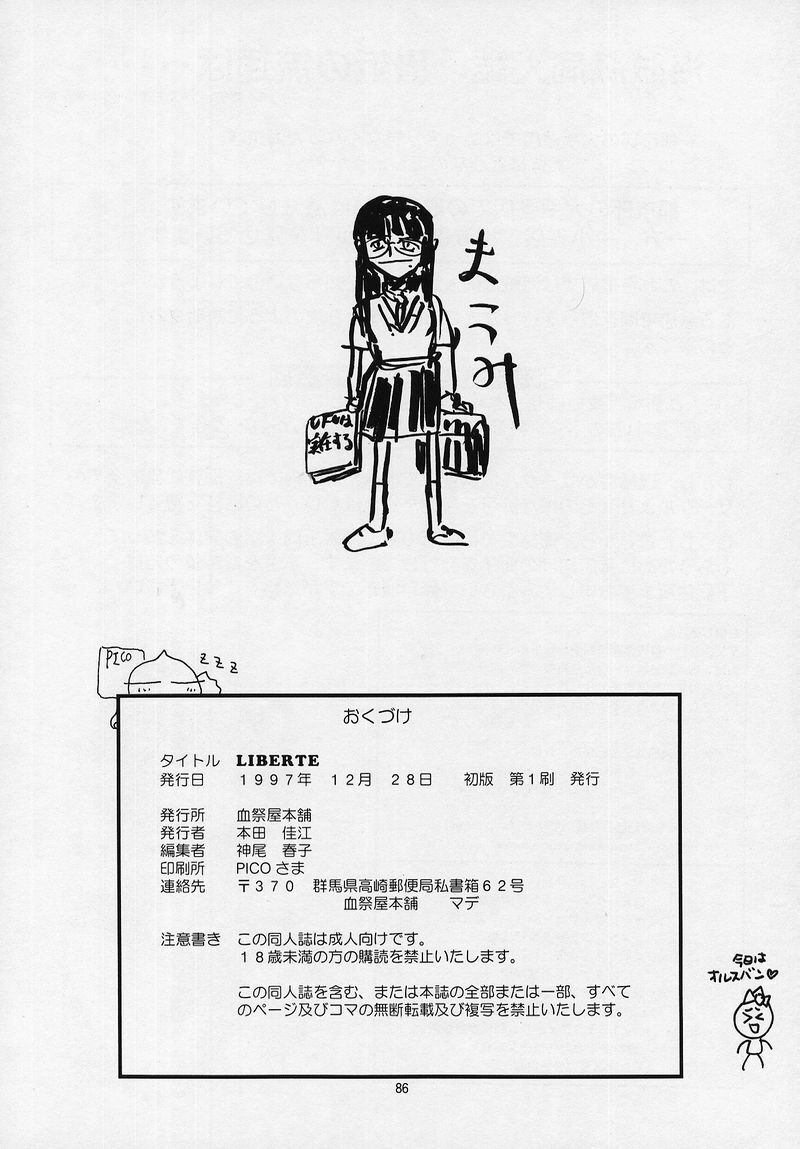 まつみ
実在する
PICO
z z z
おくづけ
タイトル LIBERTE
発行日 1997年 12月 28日 初版 第1刷 発行
発行所 血祭屋本舗
発行者 本田 佳江
編集者 神尾 春子
印刷所 PICOさま
連絡先 〒370 群馬県高崎郵便局私書箱62号
血祭屋本舗 マデ
注意書き この同人誌は成人向けです。
18歳未満の方の購読を禁止いたします。
この同人誌を含む、または本誌の全部または一部、すべて
のページ及びコマの無断転載及び複写を禁止いたします。
今日は
オルスバン♡
86